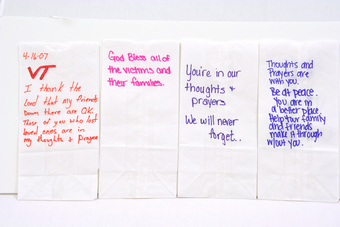 4-16-07
VT
I thank the
Lord that my friends
Down there are OK.
Those of you who lost
loved ones are in
my thoughts & prayers
God Bless all of
the victims and
their families.
You're in our
thoughts &
prayers
We will never
forget..
Thoughts and
Prayers are
with you.
Be at peace.
You are in
a better place.
Help your family
and friends
make it through
w/out you.